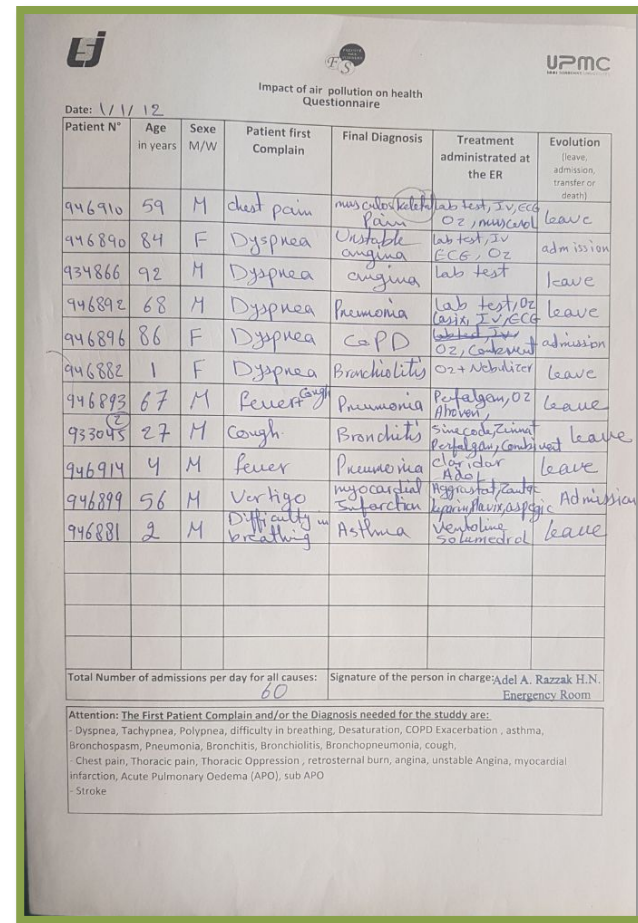 USJ
ES
UPMC
Impact of air pollution on health
Questionnaire
Date: 1/1/12
Patient N° Age in years Sexe M/W Patient first Complain Final Diagnosis Treatment administrated at the ER Evolution (leave, admission, transfer or death)
946910 59 M chest pain musculoskeletal Pain Lab test, IV, ECG O2, muscerol leave
946890 84 F Dyspnea Unstable angina Lab test, IV ECG, O2 admission
934866 92 M Dyspnea angina Lab test leave
946892 68 M Dyspnea Pneumonia Lab test, O2 Lasix, IV, ECG leave
946896 86 F Dyspnea COPD O2, Combivent admission
946882 1 F Dyspnea Bronchiolitis O2 + Nebulizer leave
946893 67 M fever + Cough Pneumonia Perfalgan, O2 leave
933045 27 M Cough Bronchitis Sinecode, Zinnat Perfalgan, Combivent leave
946914 4 M fever Pneumonia claridar Adol leave
946899 56 M Vertigo myocardial Infarction Aggrastat, Zantac Heparin, Plavix, aspegic Admission
946881 2 M Difficulty in breathing Asthma Ventoline Solumedrol leave
Total Number of admissions per day for all causes: 60
Signature of the person in charge: Adel A. Razzak H.N.
Energency Room
Attention: The First Patient Complain and/or the Diagnosis needed for the studdy are:
- Dyspnea, Tachypnea, Polypnea, difficulty in breathing, Desaturation, COPD Exacerbation , asthma,
Bronchospasm, Pneumonia, Bronchitis, Bronchiolitis, Bronchopneumonia, cough,
- Chest pain, Thoracic pain, Thoracic Oppression , retrosternal burn, angina, unstable Angina, myocardial
infarction, Acute Pulmonary Oedema (APO), sub APO
- Stroke